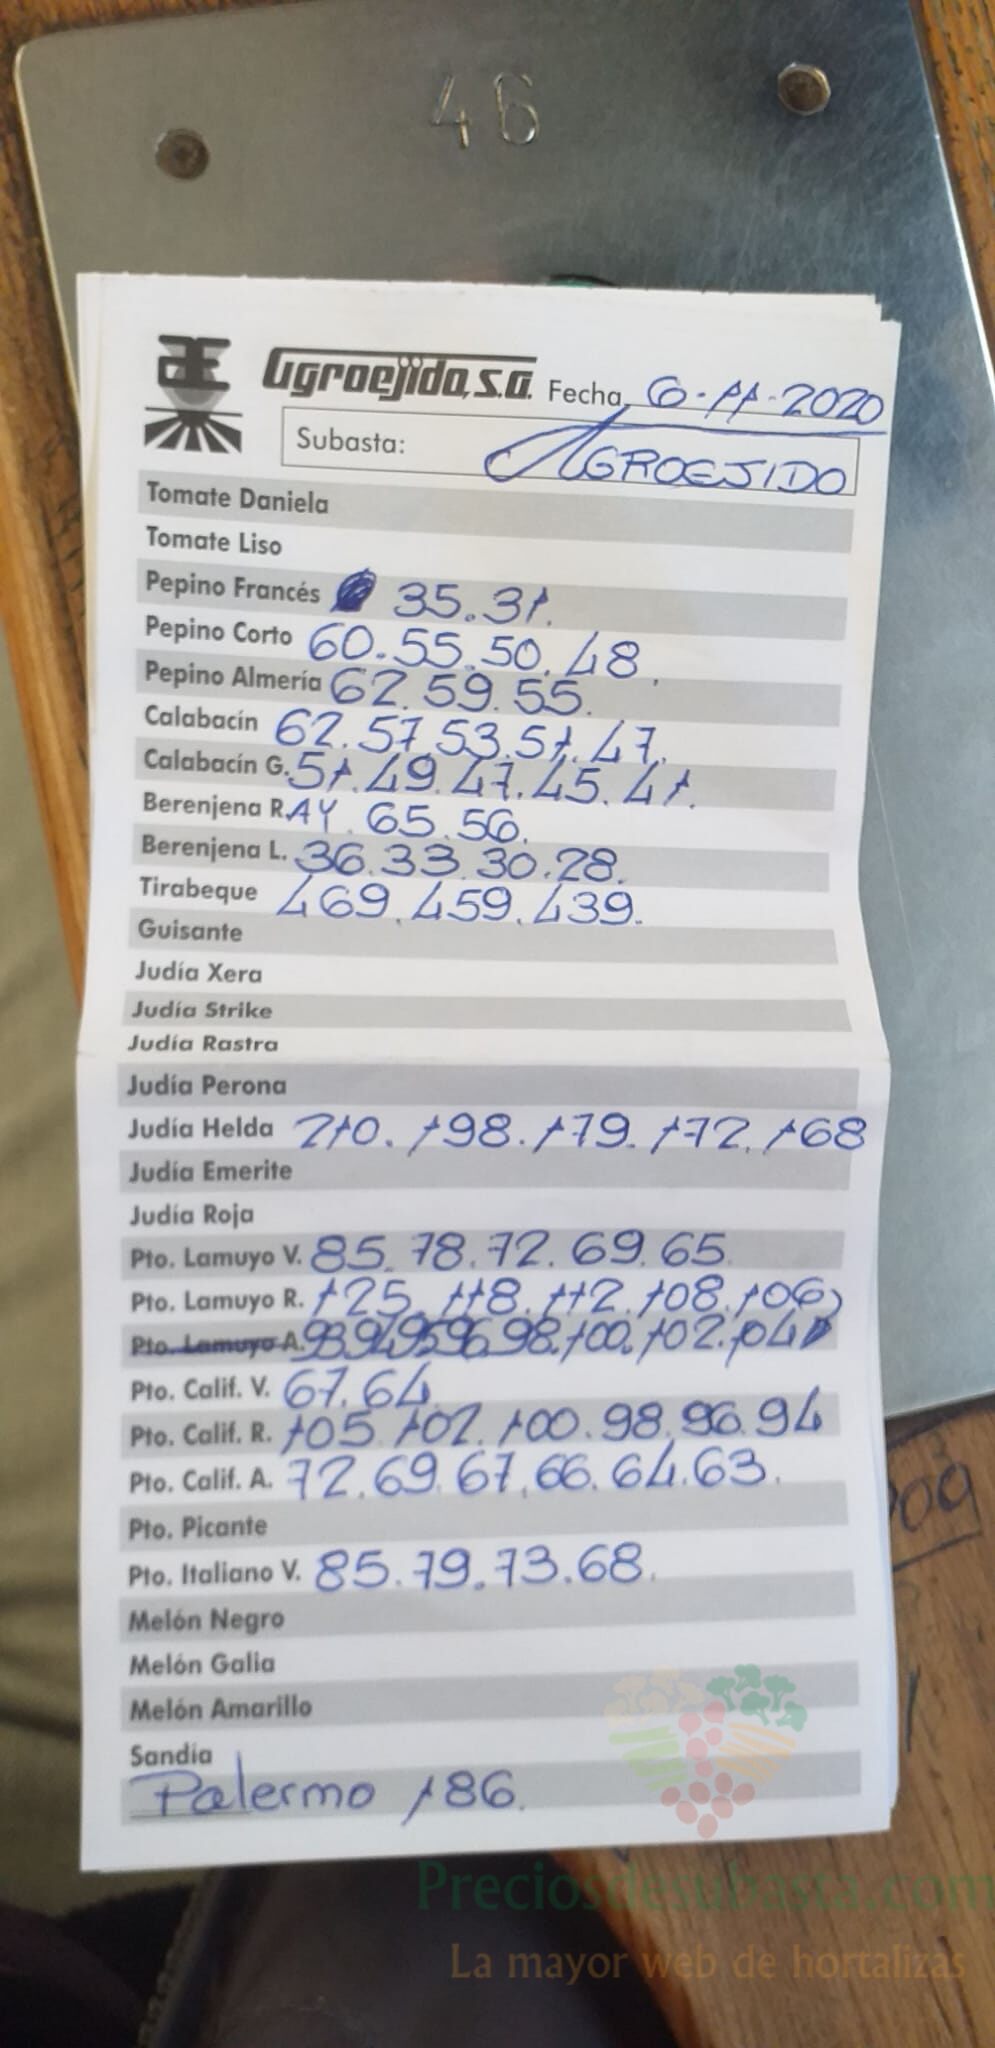 46
AE Agroejido, s.a. Fecha, 6-11-2020
Subasta: AGROEJIDO
Tomate Daniela
Tomate Liso
Pepino Francés 35.31.
Pepino Corto 60.55.50.48.
Pepino Almería 62.59.55.
Calabacín 62.57.53.51.47.
Calabacín G. 51.49.47.45.41.
Berenjena R.AY. 65.56.
Berenjena L. 36.33.30.28.
Tirabeque 469.459.439.
Guisante
Judía Xera
Judía Strike
Judía Rastra
Judía Perona
Judía Helda 210.198.179.172.168
Judía Emerite
Judía Roja
Pto. Lamuyo V. 85.78.72.69.65.
Pto. Lamuyo R. 125.118.112.108.106)
Pto. Lamuyo A. 93.94.95.96.98.100.102.104
Pto. Calif. V. 67.64
Pto. Calif. R. 105.102.100.98.96.94
Pto. Calif. A. 72.69.67.66.64.63.
Pto. Picante
Pto. Italiano V. 85.79.73.68.
Melón Negro
Melón Galia
Melón Amarillo
Sandía
Palermo 186.
Preciosdesubasta.com
La mayor web de hortalizas